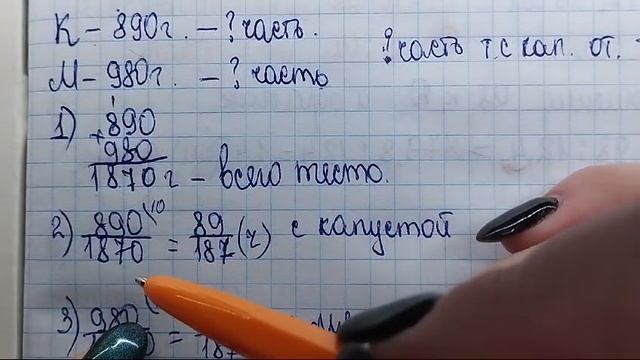 К – 890 г. – ? часть.
М – 980 г. – ? часть
? часть т. с кап. от.
1) + 890
980
1870 г – всего тесто.
2) 890/1870 = 89/187 (ч) с капустой
3) 980